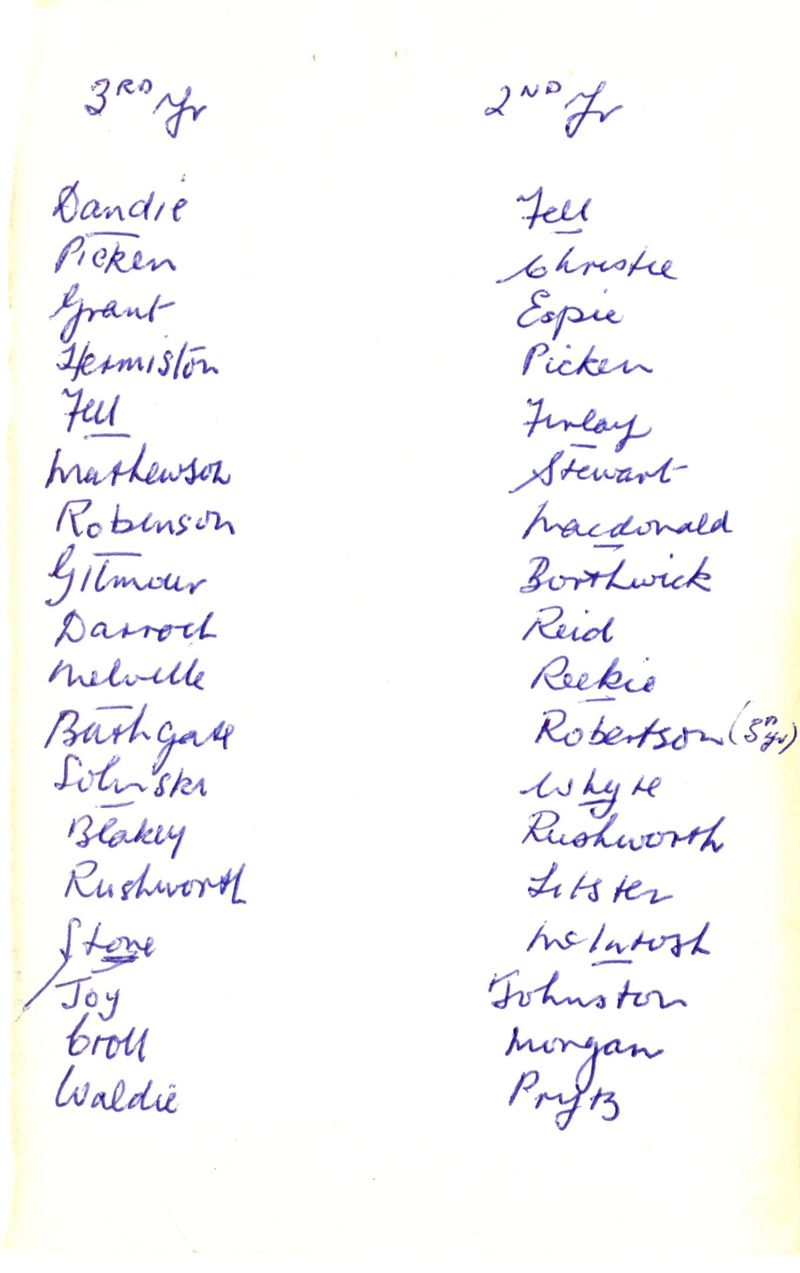 3RD Yr
Dandie
Picken
Grant
Hermiston
Fell
Mathewson
Robinson
Gilmour
Darroch
Melville
Bathgate
Solinski
Blakey
Rushworth
Stone
Joy
Croll
Waldie
2ND Yr
Fell
Christie
Espie
Picken
Finlay
Stewart
Macdonald
Borthwick
Reid
Reekie
Robertson
Whyte
Rushworth
Litster
McIntosh
Johnston
Morgan
Prytz